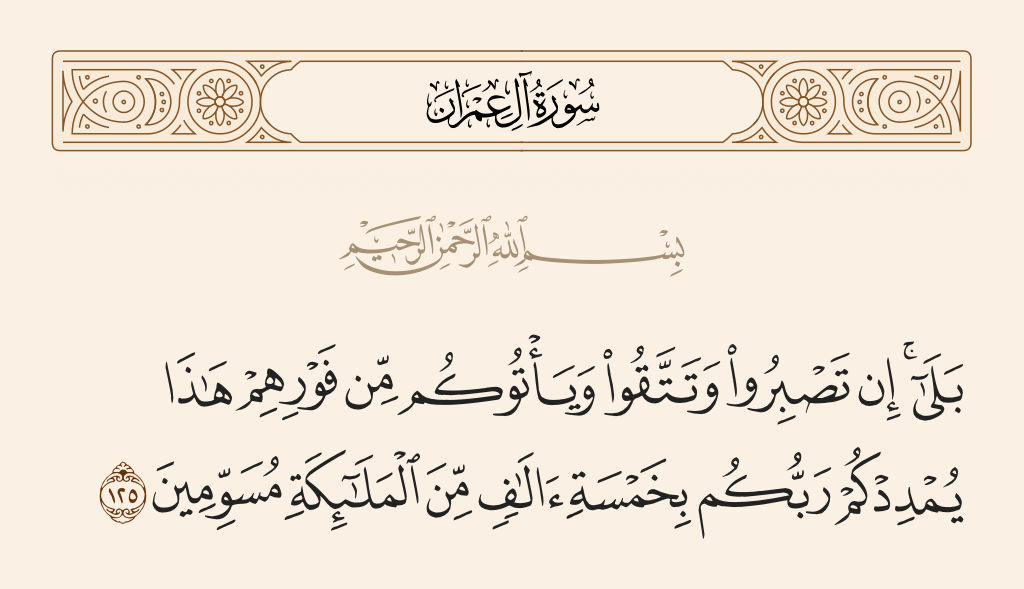 سُورَةُ آلِ عِمْرَان
بِسْمِ ٱللَّهِ ٱلرَّحْمَٰنِ ٱلرَّحِيمِ
بَلَىٰٓ ۚ إِن تَصْبِرُوا۟ وَتَتَّقُوا۟ وَيَأْتُوكُم مِّن فَوْرِهِمْ هَٰذَا
يُمْدِدْكُمْ رَبُّكُم بِخَمْسَةِ ءَالَٰفٍ مِّنَ ٱلْمَلَٰٓئِكَةِ مُسَوِّمِينَ ١٢٥